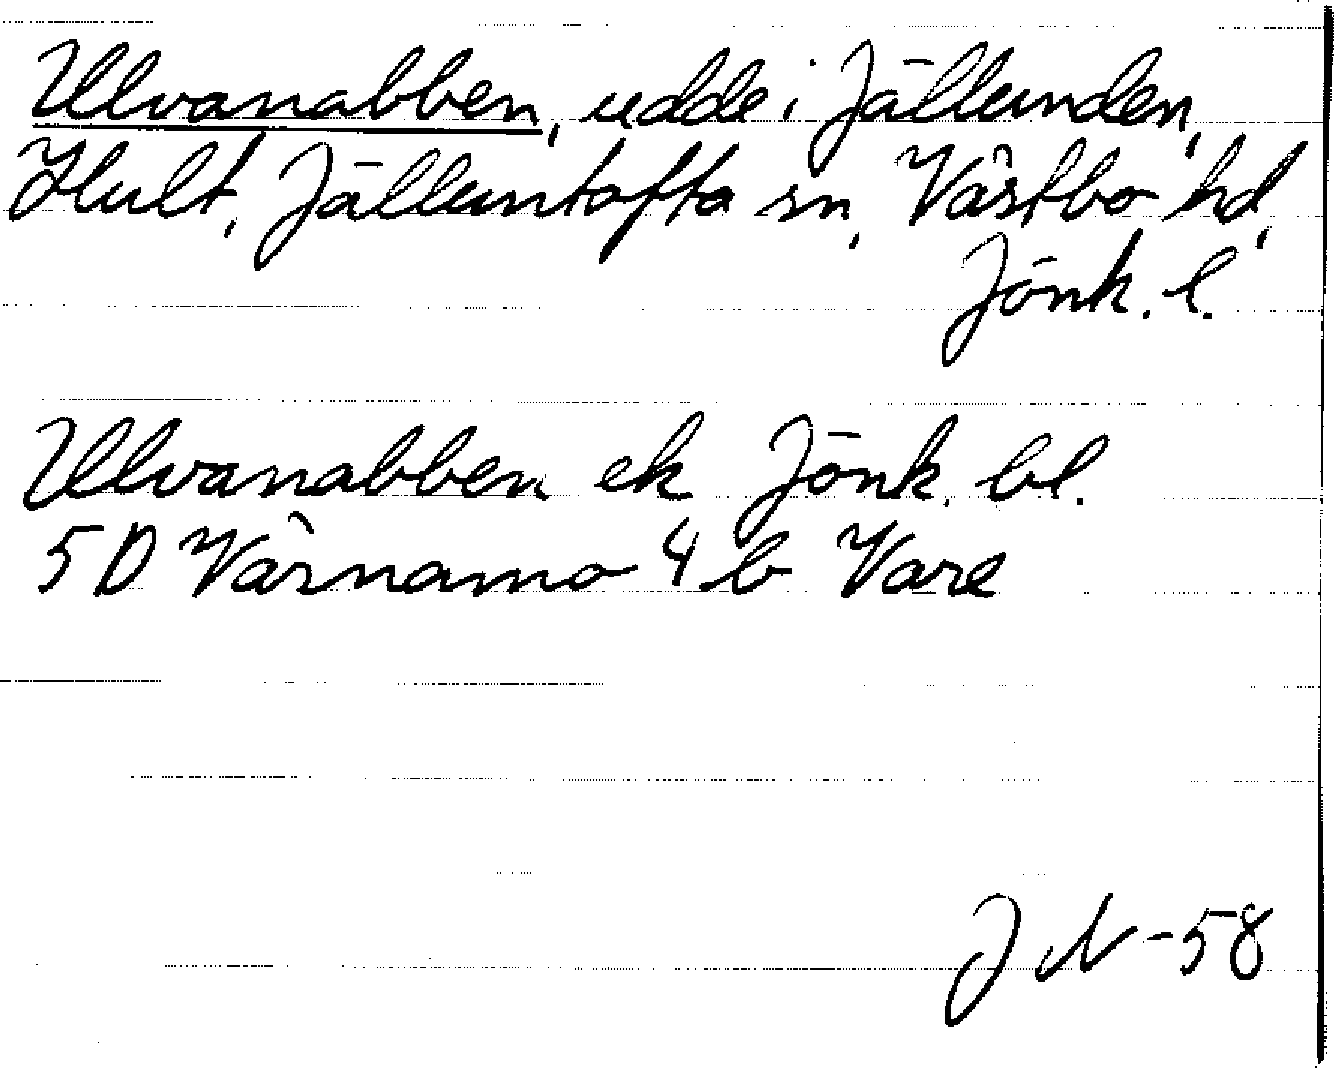 Ulvanabben, udde i Jällunden,
Hult, Jälluntofta sn, Västbo hd,
Jönk. l.
Ulvanabben ek Jönk. bl.
5D Värnamo 4 b Vare
JN -58